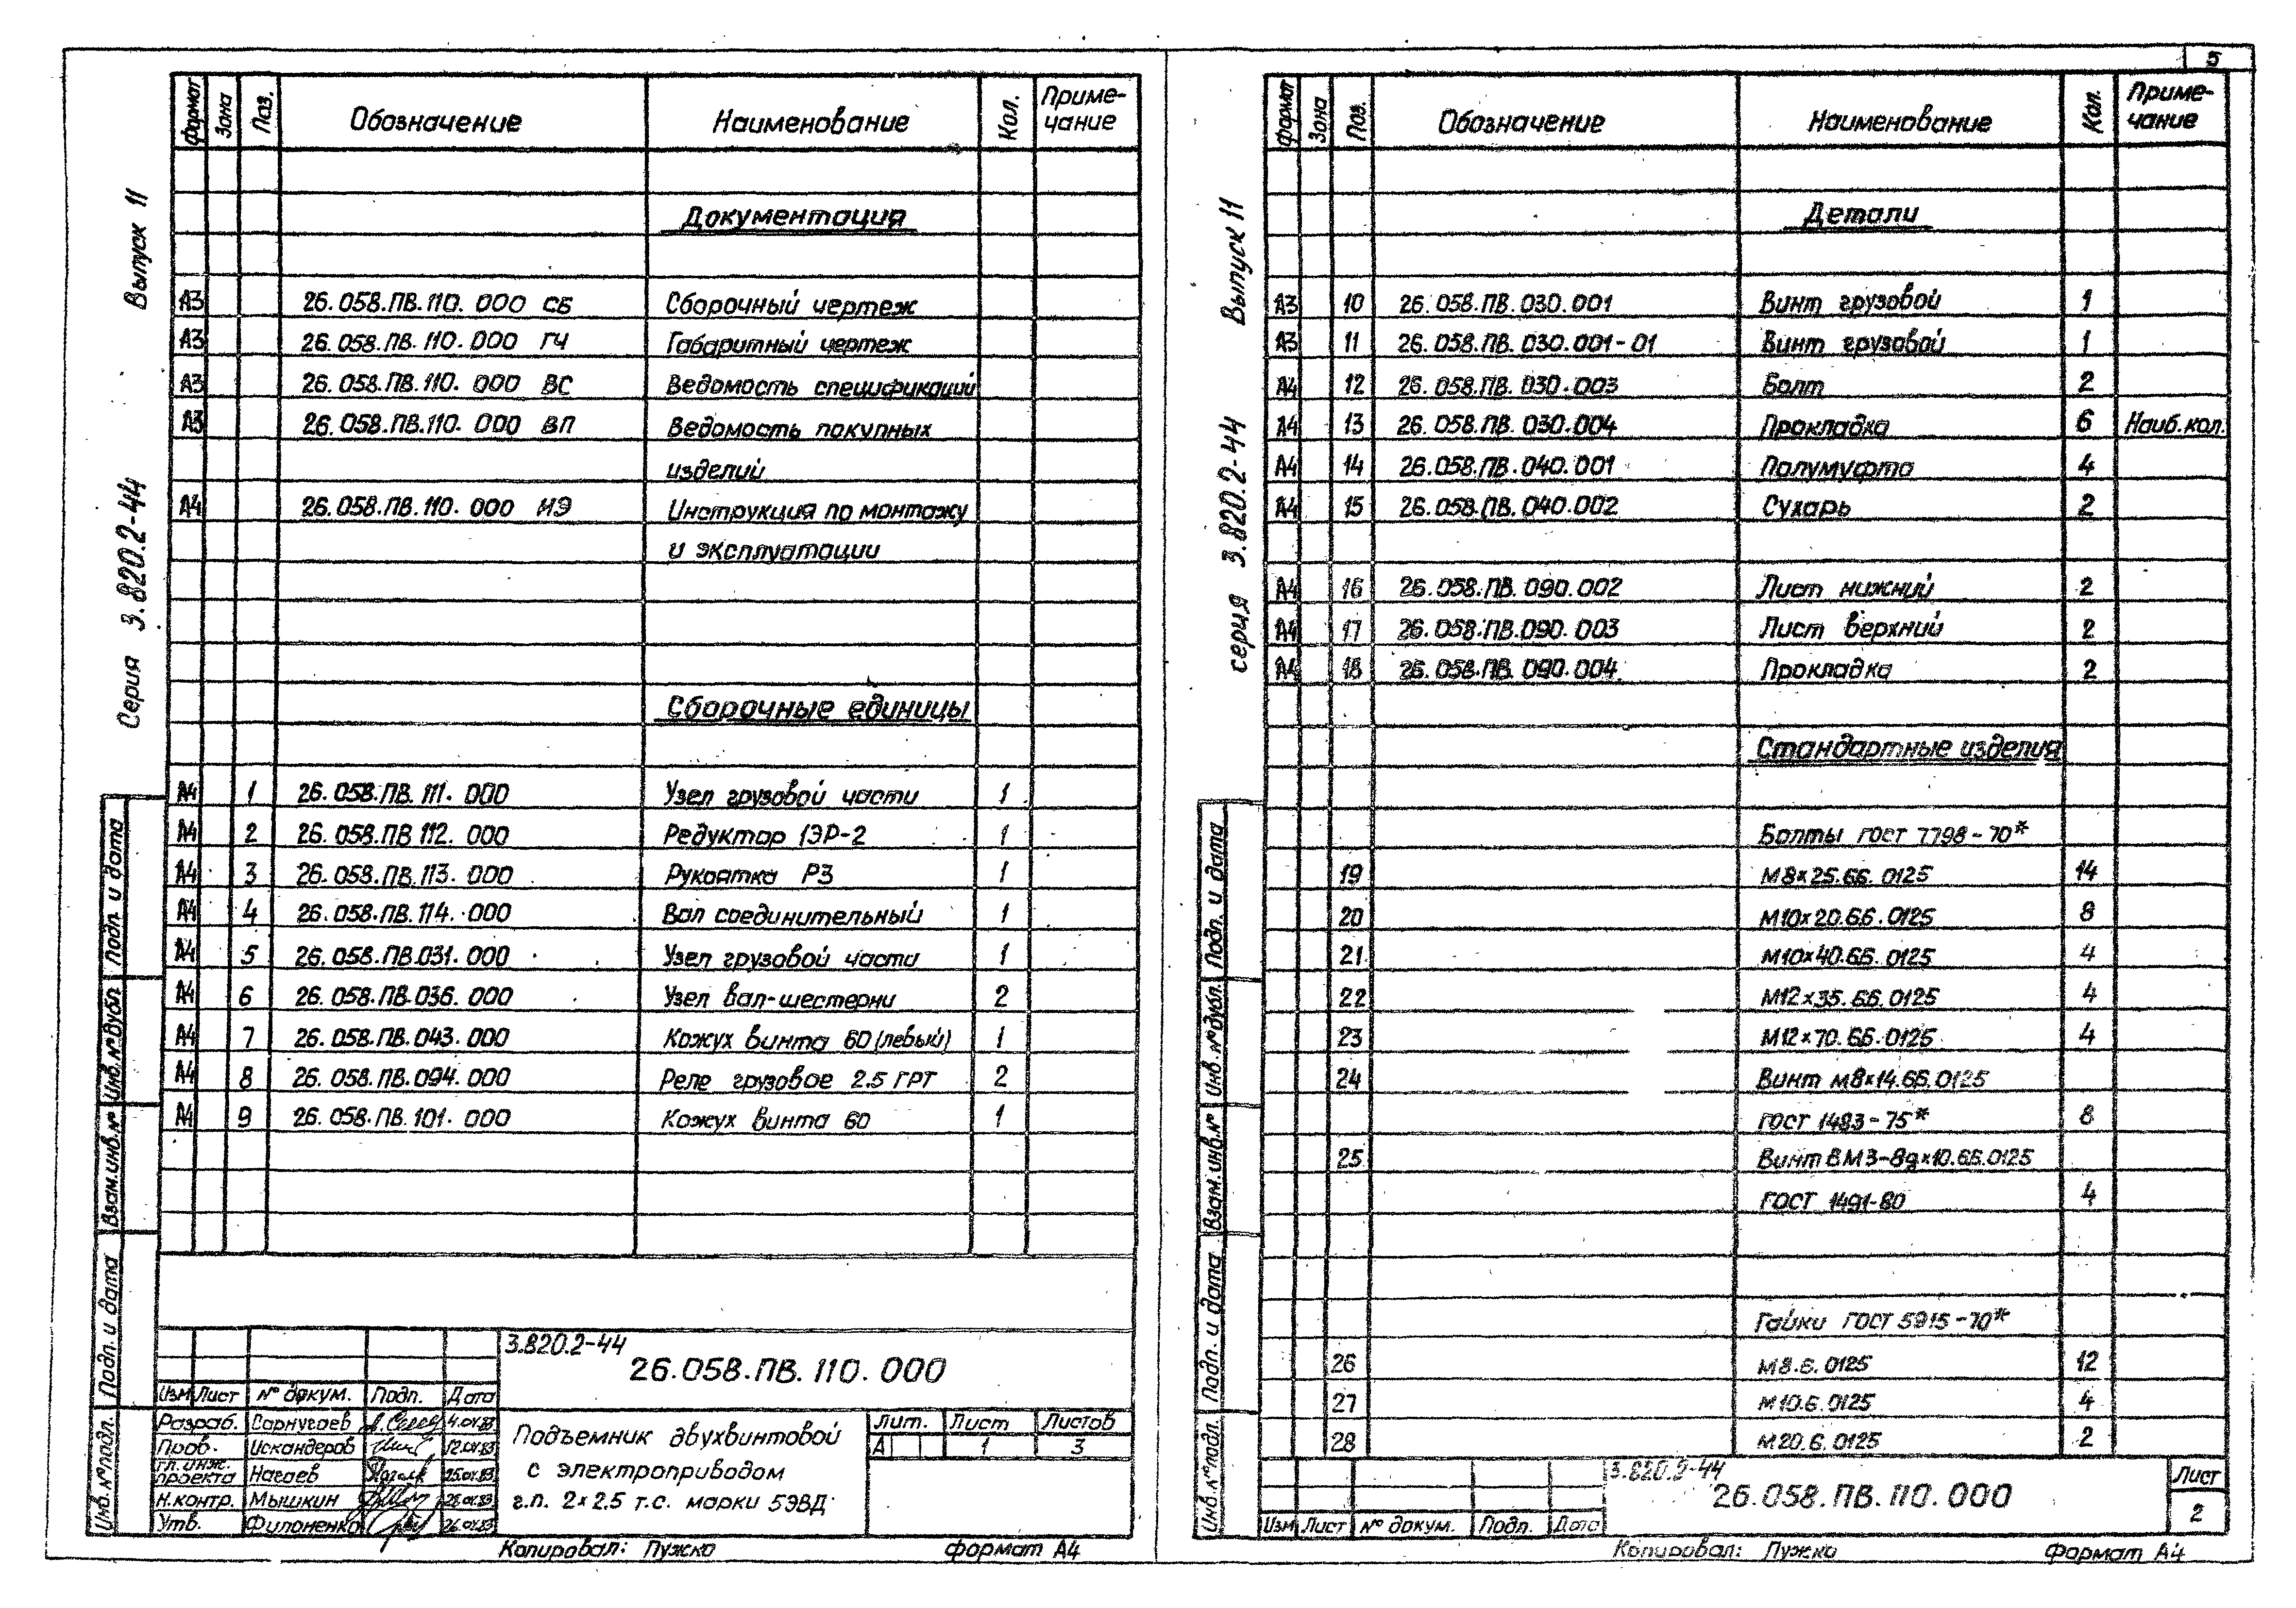 5
Серия 3.820.2-44 Выпуск 11
формат Зона Поз. Обозначение Наименование Кол. Приме-
чание
Документация
А3 26.058.ПВ.110.000 СБ Сборочный чертеж
А3 26.058.ПВ.110.000 ГЧ Габаритный чертеж
А3 26.058.ПВ.110.000 ВС Ведомость спецификаций
А3 26.058.ПВ.110.000 ВП Ведомость покупных
изделий
А4 26.058.ПВ.110.000 ИЭ Инструкция по монтажу
и эксплуатации
Сборочные единицы
А4 1 26.058.ПВ.111.000 Узел грузовой части 1
А4 2 26.058.ПВ 112.000 Редуктор 1ЭР-2 1
А4 3 26.058.ПВ.113.000 Рукоятка Р3 1
А4 4 26.058.ПВ.114.000 Вал соединительный 1
А4 5 26.058.ПВ.031.000 Узел грузовой части 1
А4 6 26.058.ПВ.036.000 Узел вал-шестерни 2
А4 7 26.058.ПВ.043.000 Кожух винта 60 (левый) 1
А4 8 26.058.ПВ.094.000 Реле грузовое 2.5 ГРТ 2
А4 9 26.058.ПВ.101.000 Кожух винта 60 1
Инв.№подл. Подп. и дата Взам.инв.№ Инв.№дубл. Подп. и дата
3.820.2-44
26.058.ПВ.110.000
Изм Лист № докум. Подп. Дата
Разраб.
Пров. Искандеров
Гл. инж.
проекта Нагаев
Н.контр. Мышкин
Утв. Филоненко
Подъемник двухвинтовой
с электроприводом
г.п. 2×2.5 т.с. марки 5ЭВД
Лит. Лист Листов
А 1 3
Копировал: Пужко формат А4
серия 3.820.2-44 Выпуск 11
формат Зона Поз. Обозначение Наименование Кол. Приме-
чание
Детали
А3 10 26.058.ПВ.030.001 Винт грузовой 1
А3 11 26.058.ПВ.030.001-01 Винт грузовой 1
А4 12 26.058.ПВ.030.003 Болт 2
А4 13 26.058.ПВ.030.004 Прокладка 6 Наиб.кол.
А4 14 26.058.ПВ.040.001 Полумуфта 4
А4 15 26.058.ПВ.040.002 Сухарь 2
А4 16 26.058.ПВ.090.002 Лист нижний 2
А4 17 26.058.ПВ.090.003 Лист верхний 2
А4 18 26.058.ПВ.090.004 Прокладка 2
Стандартные изделия
Болты ГОСТ 7798-70*
19 М8×25.66.0125 14
20 М10×20.66.0125 8
21 М10×40.66.0125 4
22 М12×35.66.0125 4
23 М12×70.66.0125 4
24 Винт М8×14.66.0125
ГОСТ 1483-75* 8
25 Винт ВМ3-8g×10.66.0125
ГОСТ 1491-80 4
Гайки ГОСТ 5915-70*
26 М8.6.0125 12
27 М10.6.0125 4
28 М20.6.0125 2
Инв.№подл. Подп. и дата Взам.инв.№ Инв.№дубл. Подп. и дата
3.820.2-44
26.058.ПВ.110.000
Изм Лист № докум. Подп. Дата
Лист
2
Копировал: Пужко Формат А4